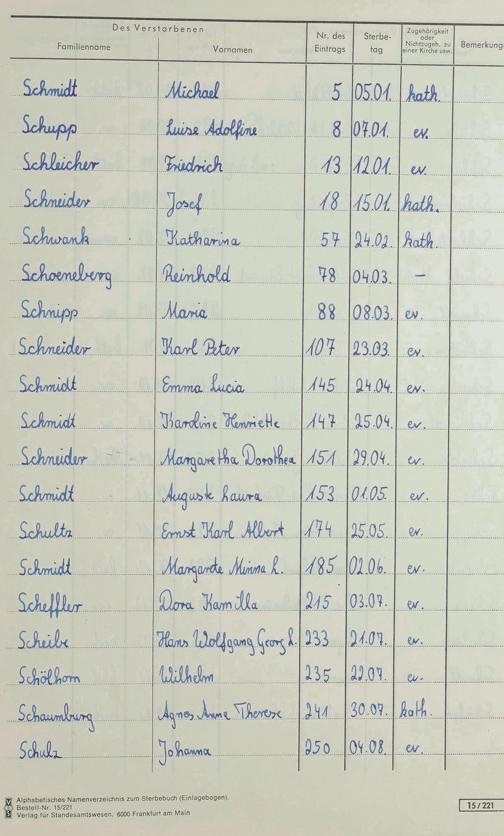 Des Verstorbenen
Familienname Vornamen Nr. des Eintrags Sterbe- tag Zugehörigkeit oder Nichtzugeh. zu einer Kirche usw. Bemerkung
Schmidt Michael 5 05.01. kath.
Schupp Luise Adolfine 8 07.01. ev.
Schleicher Friedrich 13 12.01. ev.
Schneider Josef 18 15.01. kath.
Schwank Katharina 57 24.02. kath.
Schoeneberg Reinhold 78 04.03. –
Schnipp Maria 88 08.03. ev.
Schneider Karl Peter 107 23.03. ev.
Schmidt Emma Lucia 145 24.04. ev.
Schmidt Karoline Henriette 147 25.04. ev.
Schneider Margaretha Dorothea 151 29.04. ev.
Schmidt Auguste Laura 153 01.05. ev.
Schultz Ernst Karl Albert 174 25.05. ev.
Schmidt Margarete Minna L. 185 02.06. ev.
Scheffler Dora Kamilla 215 03.07. ev.
Scheibe Hans Wolfgang Georg L. 233 21.07. ev.
Schölhorn Wilhelm 235 22.07. ev.
Schaumburg Agnes Anna Therese 241 30.07. kath.
Schulz Johanna 250 04.08. ev.
Alphabetisches Namenverzeichnis zum Sterbebuch (Einlagebogen).
Bestell-Nr. 15/221
Verlag für Standesamtswesen, 6000 Frankfurt am Main
15/221